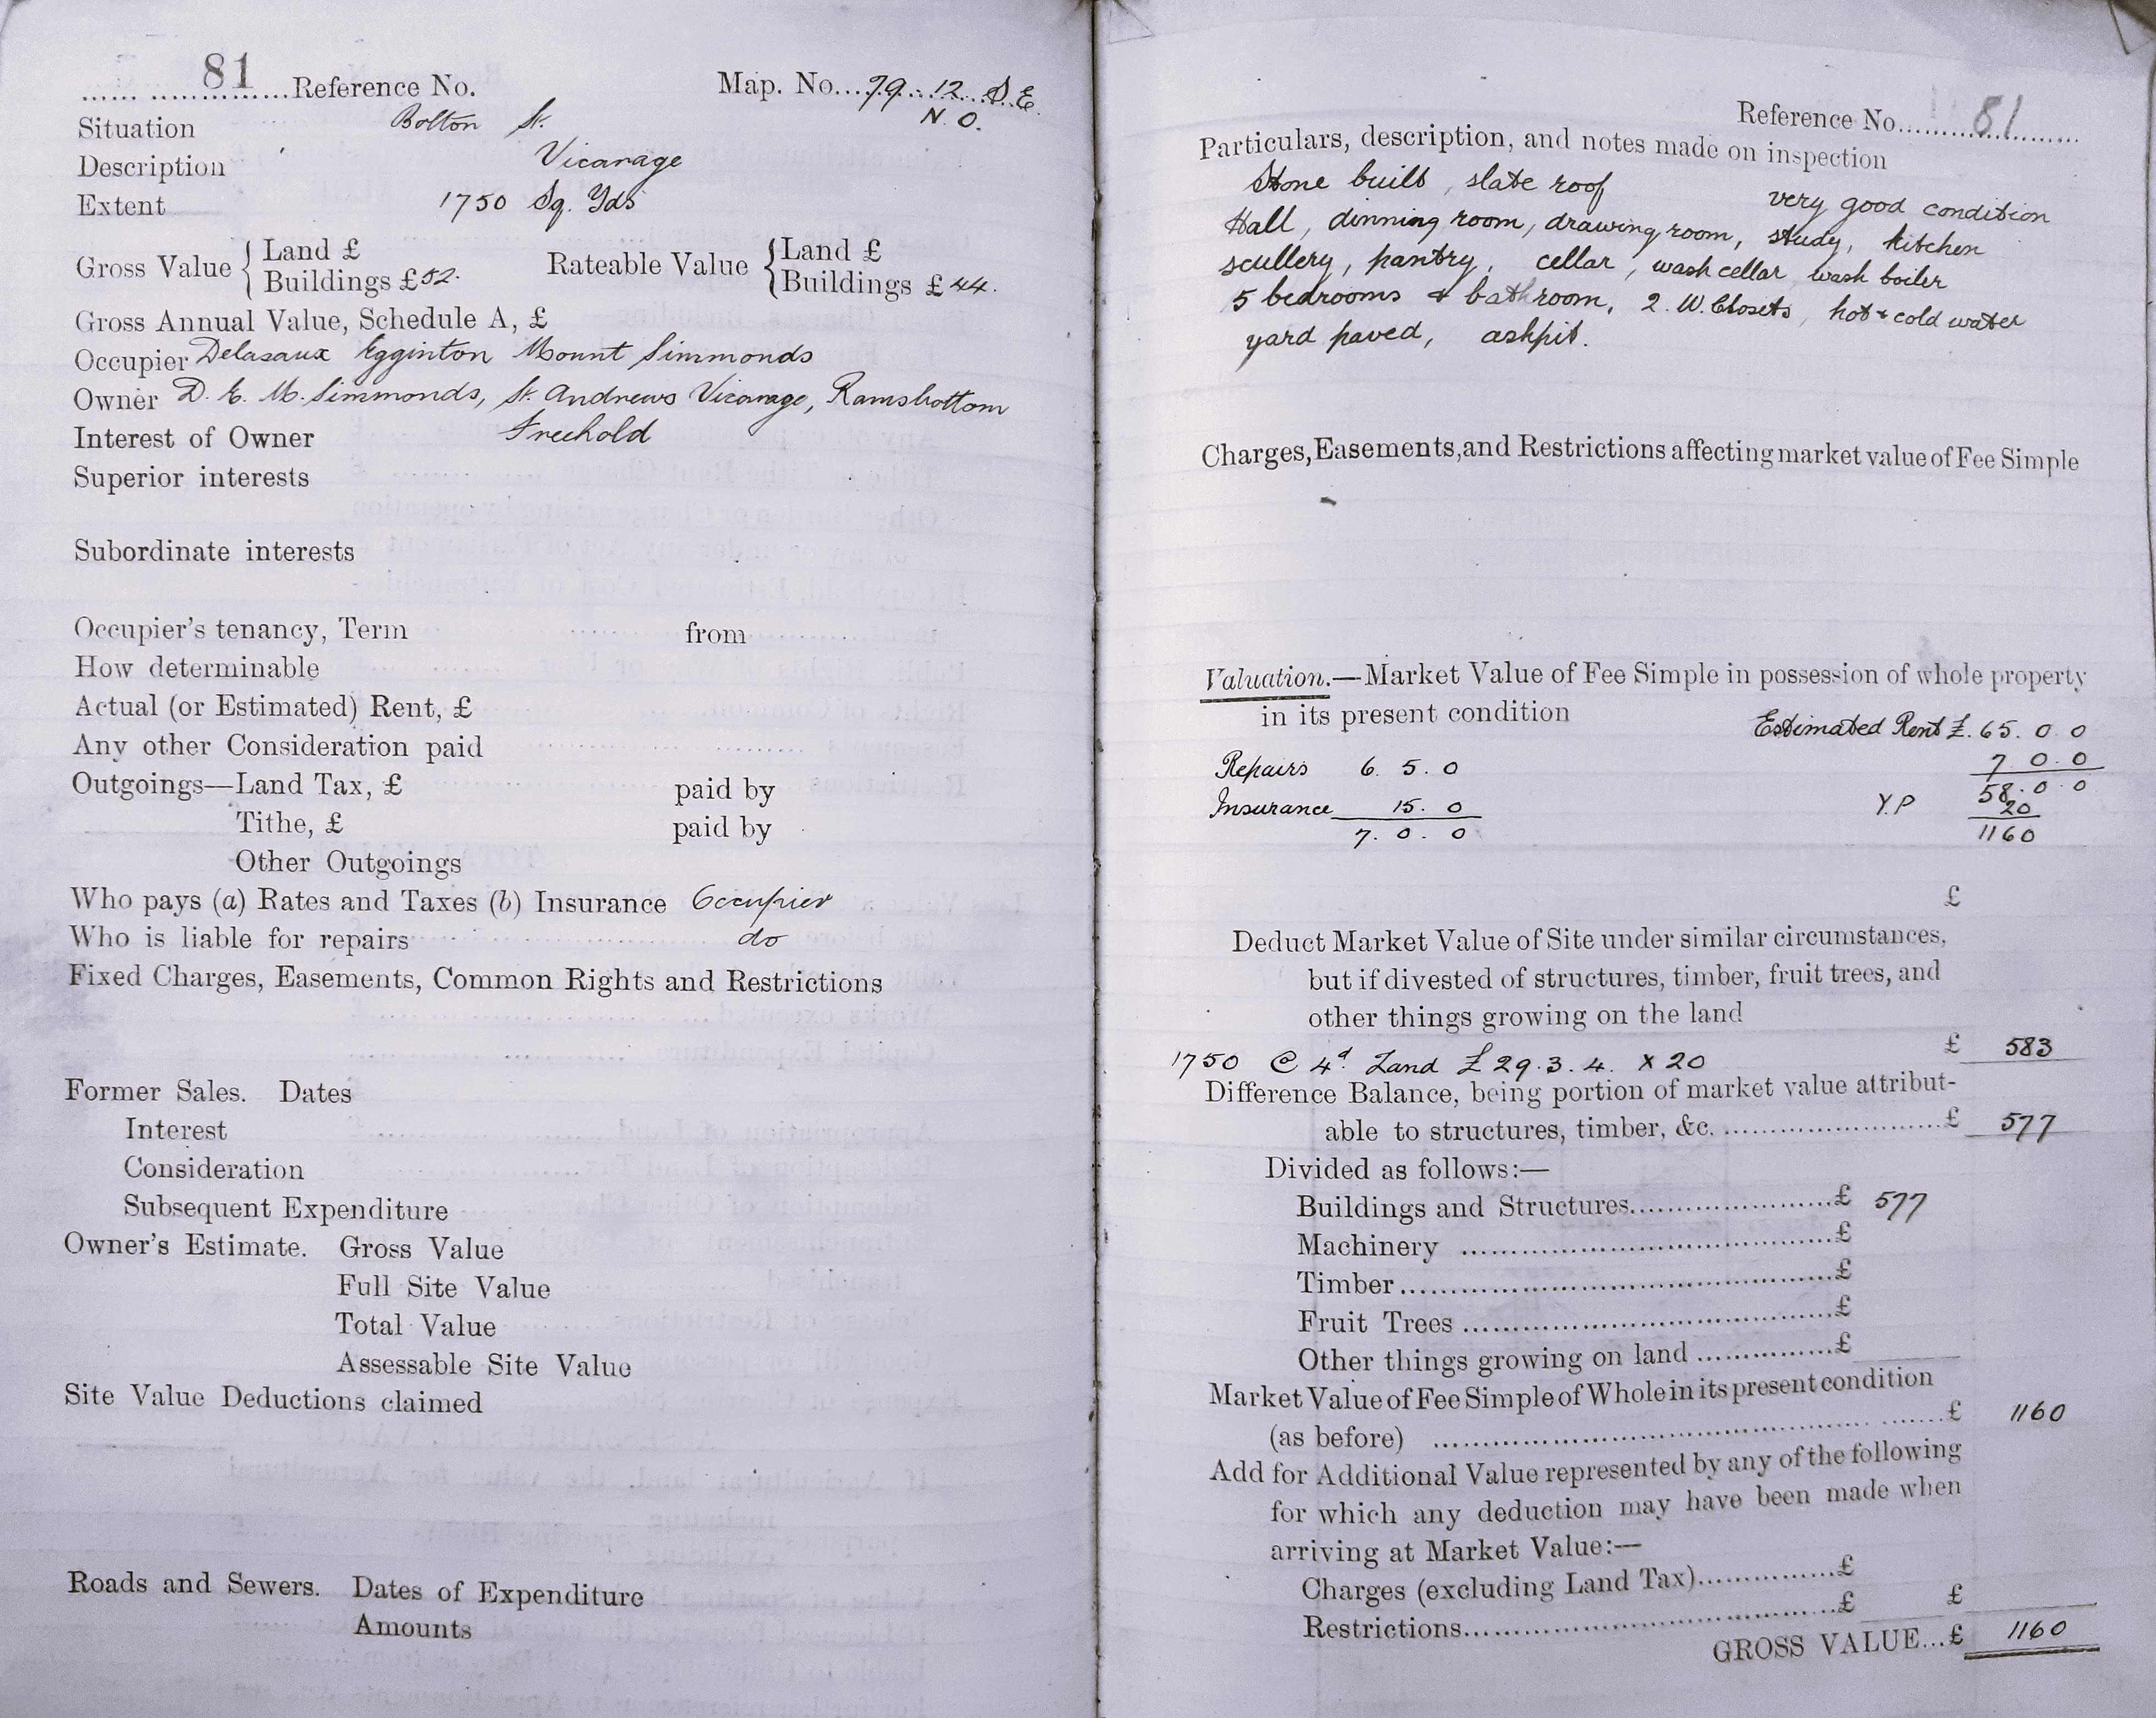 81 Reference No. Map. No. 79. 12 S E
Situation Bolton St. N. O.
Description Vicarage
Extent 1750 Sq. Yds
Gross Value { Land £ Rateable Value { Land £
Buildings £52. Buildings £44.
Gross Annual Value, Schedule A, £
Occupier Delasaux Egginton Mount Simmonds
Owner D. E. M. Simmonds, St. Andrews Vicarage, Ramsbottom
Interest of Owner Freehold
Superior interests
Subordinate interests
Occupier's tenancy, Term from
How determinable
Actual (or Estimated) Rent, £
Any other Consideration paid
Outgoings—Land Tax, £ paid by
Tithe, £ paid by
Other Outgoings
Who pays (a) Rates and Taxes (b) Insurance Occupier
Who is liable for repairs do
Fixed Charges, Easements, Common Rights and Restrictions
Former Sales. Dates
Interest
Consideration
Subsequent Expenditure
Owner's Estimate. Gross Value
Full Site Value
Total Value
Assessable Site Value
Site Value Deductions claimed
Roads and Sewers. Dates of Expenditure
Amounts
Reference No. 81
Particulars, description, and notes made on inspection
Stone built, slate roof very good condition
Hall, dinning room, drawing room, study, kitchen
scullery, pantry, cellar, wash cellar, wash boiler
5 bedrooms & bathroom, 2. W. Closets, hot & cold water
yard paved, ashpit.
Charges, Easements, and Restrictions affecting market value of Fee Simple
-
Valuation.—Market Value of Fee Simple in possession of whole property
in its present condition Estimated Rent £. 65. 0 0
Repairs 6. 5. 0 7 0. 0
58. 0 0
Insurance 15. 0 Y.P 20
7. 0. 0 1160
£
Deduct Market Value of Site under similar circumstances,
but if divested of structures, timber, fruit trees, and
other things growing on the land
1750 @ 4d Land £29. 3. 4. x 20 £ 583
Difference Balance, being portion of market value attribut-
able to structures, timber, &c. £ 577
Divided as follows:—
Buildings and Structures £ 577
Machinery £
Timber £
Fruit Trees £
Other things growing on land £
Market Value of Fee Simple of Whole in its present condition
(as before) £ 1160
Add for Additional Value represented by any of the following
for which any deduction may have been made when
arriving at Market Value:—
Charges (excluding Land Tax) £
Restrictions £ £
GROSS VALUE...£ 1160